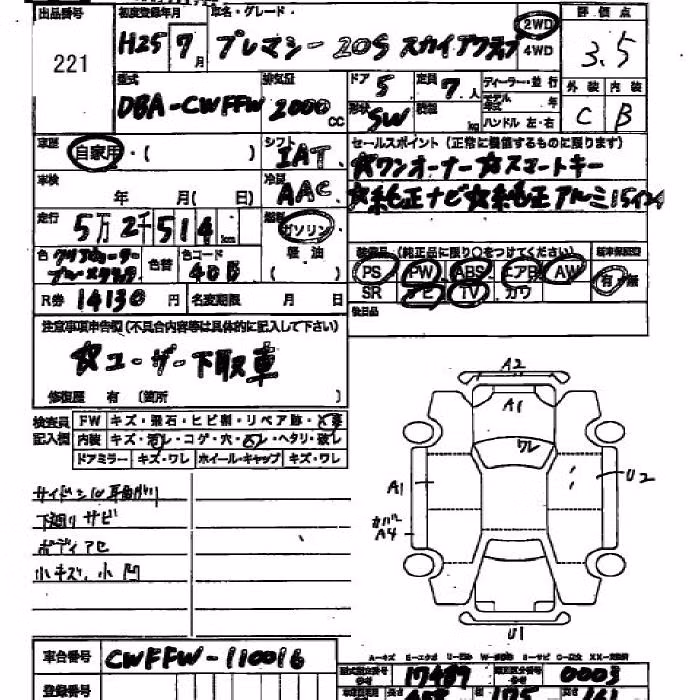 出品番号
221
初度登録年月
H25 7月
車名・グレード
プレマシー 20S スカイアクティブ
2WD
4WD
評価点
3.5
型式
DBA-CWFFW
排気量
2000cc
ドア 5
定員 7人
ディーラー・並行
モデル年式 年
形状 SW
積載 kg
ハンドル 左・右
外装 内装
C B
車歴
自家用・( )
シフト
IAT
セールスポイント(正常に機能するものに限ります)
☆ワンオーナー ☆スマートキー
☆純正ナビ ☆純正アルミ15インチ
車検
年 月( 日)
冷房
AAC
走行
5万2千514km
燃料
ガソリン
軽油
( )
色
色替
色コード
装備品(純正品に限り○をつけてください)
PS PW ABS エアB AW
SR ナビ TV カワ
有・無
R券 14130円
名変期限 月 日
後日品
注意事項申告欄(不具合内容等は具体的に記入して下さい)
☆ユーザー下取車
修復歴 有 (箇所 )
検査員
記入欄
FW キズ・飛石・ヒビ割・リペア跡・X
内装 キズ・汚レ・コゲ・穴・スレ・ヘタリ・破レ
ドアミラー キズ・ワレ ホイール・キャップ キズ・ワレ
下廻リ サビ
ボディ アセ
小キズ、小凹
A2
A1
ワレ
A1
U2
カバー
A4
U1
車台番号
CWFFW-110016
型式指定番号
17489
類別区分番号
0003
登録番号